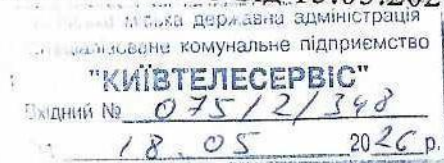 міська державна адміністрація
комунальне підприємство
"КИЇВТЕЛЕСЕРВІС"
Вхідний № 075/2/348
18. 05 2026 р.